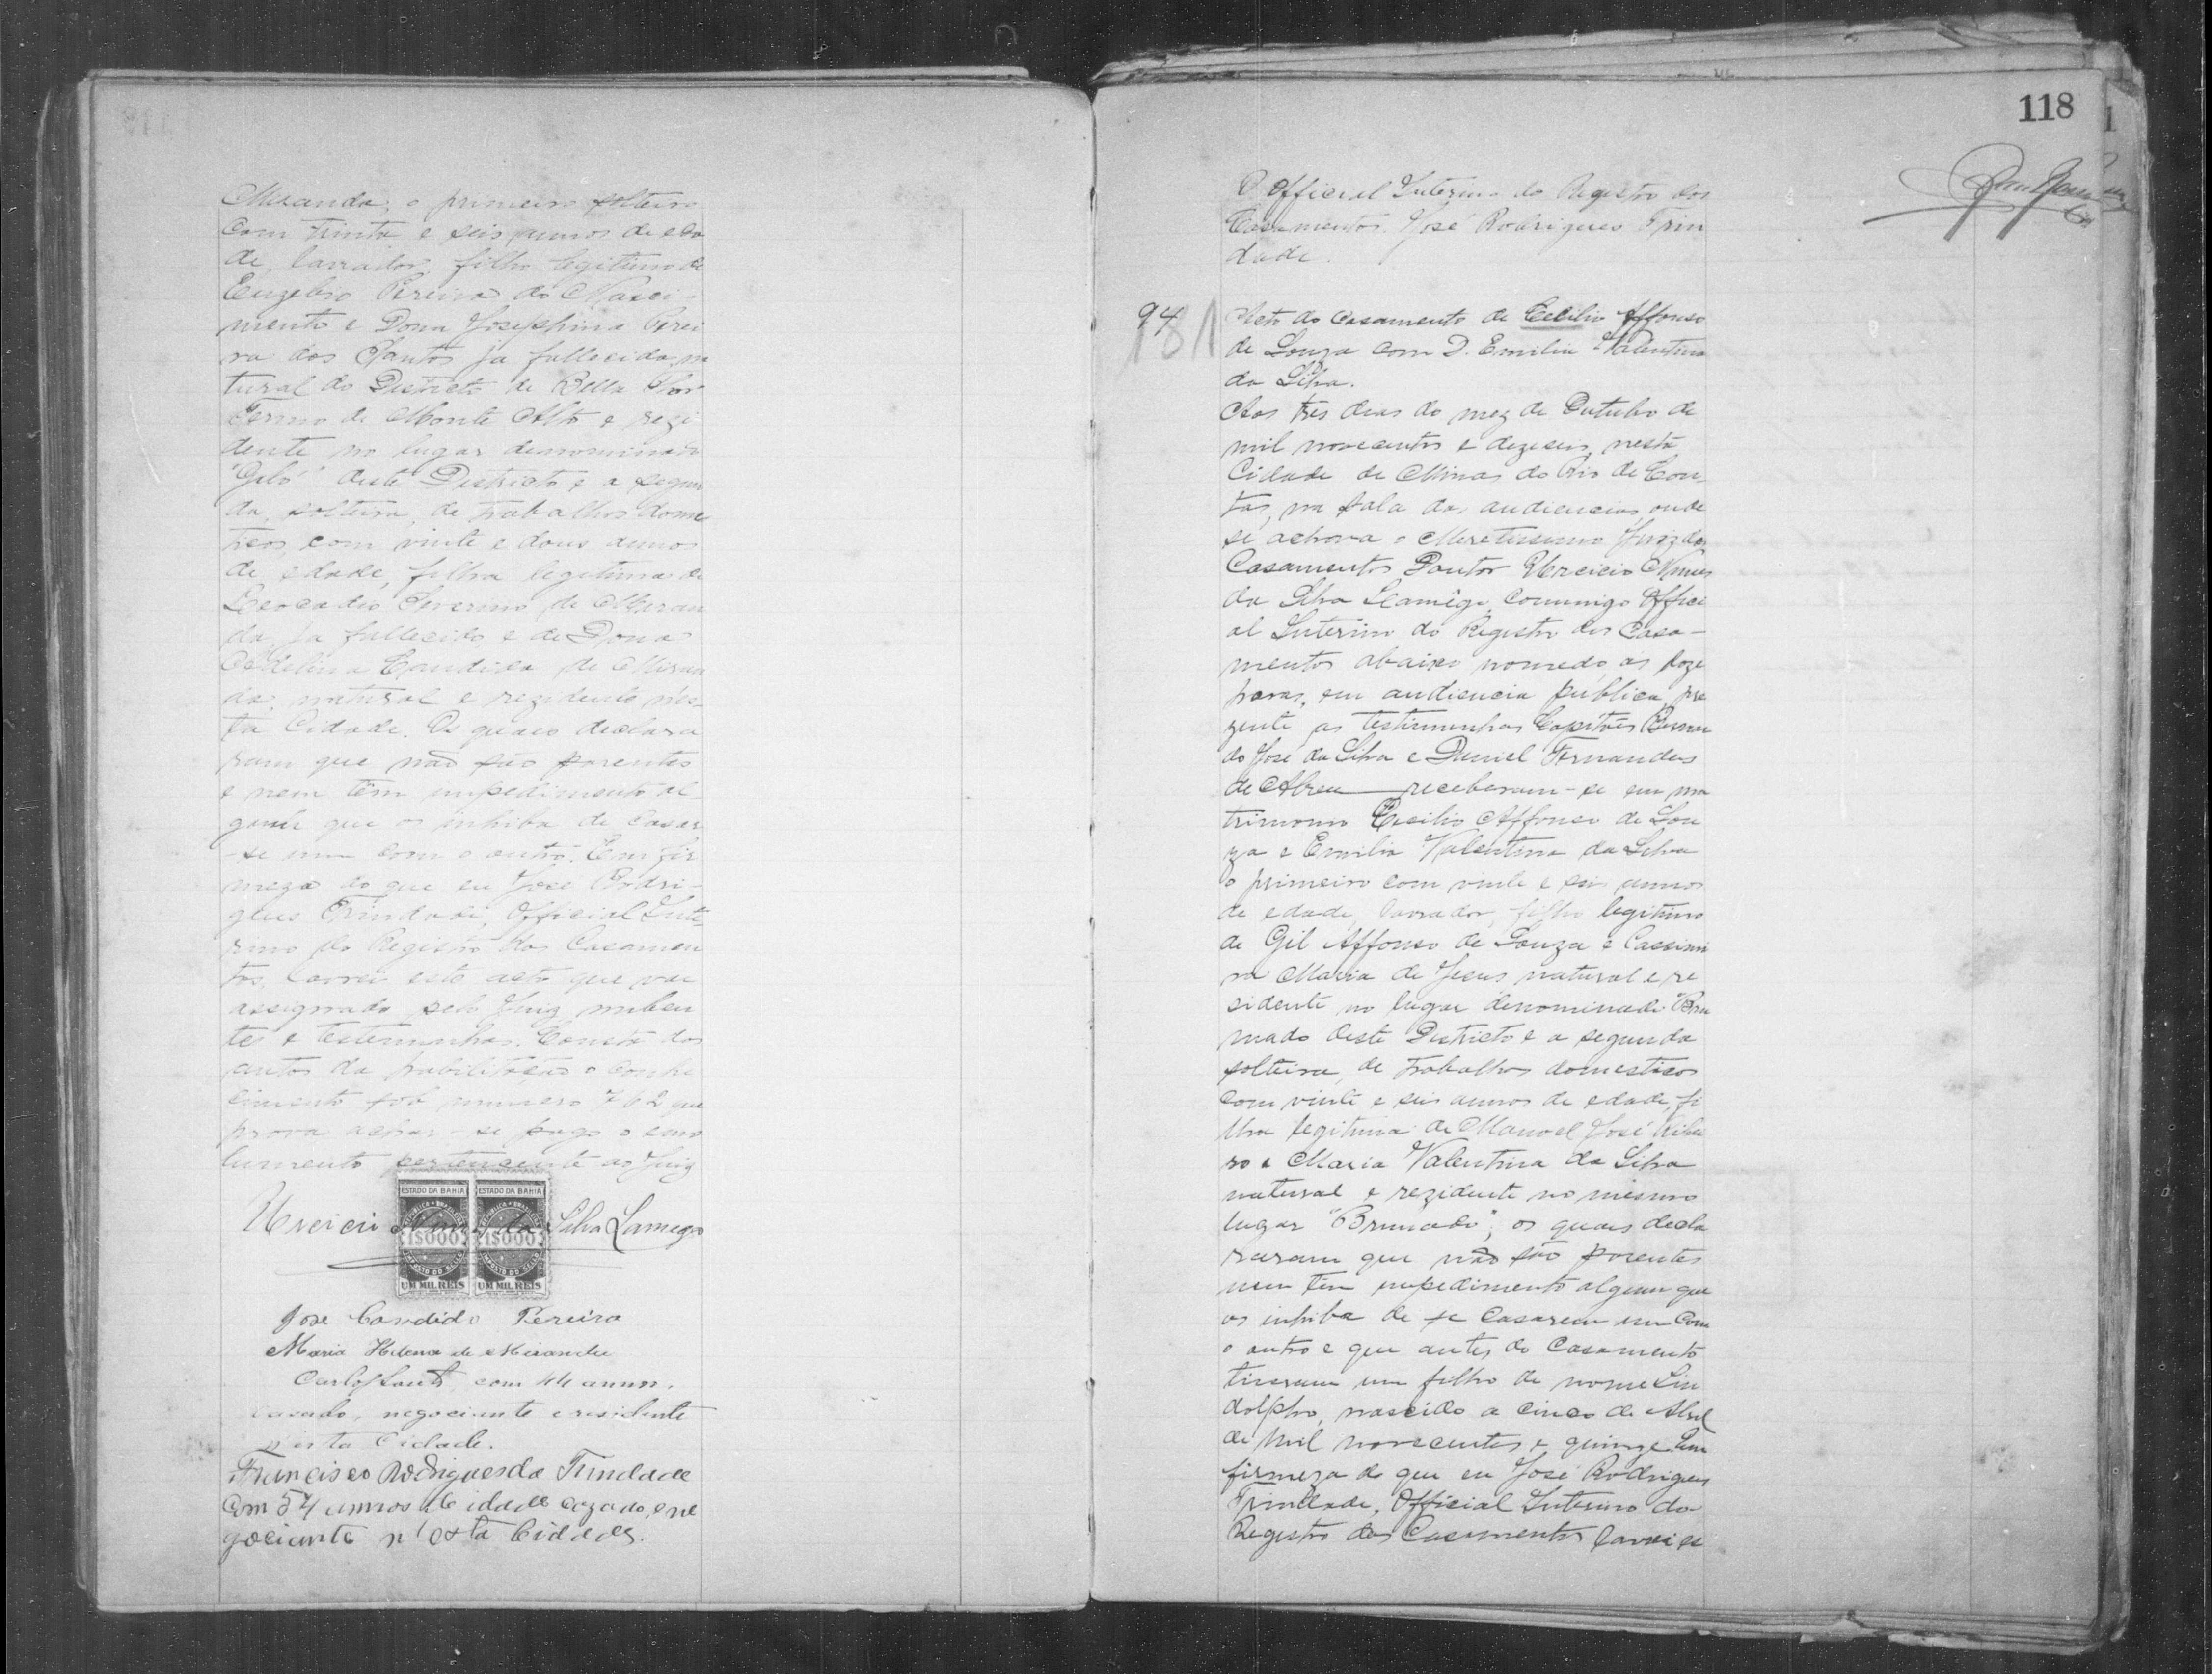 Miranda, o primeiro solteiro
com trinta e seis annos de eda
de, lavrador, filho legitimo de
Euzebio Pereira do Nasci-
mento e Dona Josephina Perei
ra dos Santos já fallecida, na
tural do Districto de Bella Flor
Termo de Monte Alto e rezi
dente no lugar denominado
"Giló" deste Districto e a segun
da, solteira, de trabalhos domes
ticos, com vinte e dous annos
de edade, filha legitima de
Leocadio Severino de Miran
da, já fallecido e de Dona
Candida de Miran
da, natural e rezidente nes-
ta Cidade. Os quaes declara
ram que não são parentes
e nem têm impedimento al
gum que os inhiba de casar
-se um com o outro. Em fir
meza do que eu José Rodri-
gues Trindade, Official Inte
rino do Registro dos Casamen
tos, lavrei este acto que vae
assignado pelo Juiz, nuben
tes e testemunhas. Consta dos
autos da habilitação o conhe
cimento sob numero 762 que
prova achar-se pago o emo
lumento pertencente ao Juiz
ESTADO DA BAHIA ESTADO DA BAHIA
Urcicio Nunes da Silva Lamego
1$000 1$000
IMPOSTO DO SELLO IMPOSTO DO SELLO
UM MIL REIS UM MIL REIS
Jose Candido Pereira
Maria Helena de Miranda
Carlos Souto, com 44 annos,
casado, negociante e residente
n'esta Cidade.
Francisco Rodrigues da Trindade
Com 54 annos de idade cazado, e ne
gociante n'esta Cidade.
118
O Official Interino do Registro dos
Casamentos, José Rodrigues Trin
dade.
94
181
Acto do casamento de Cecilio Affonso
de Souza com D. Emilia Valentina
da Silva.
Aos tres dias do mez de Outubro de
mil novecentos e dezeseis, nesta
Cidade de Minas do Rio de Con-
tas, na sala das audiencias onde
se achava o Meretissimo Juiz dos
Casamentos Doutor Urcicio Nunes
da Silva Lamêgo, commigo Offici
al Interino do Registro dos Casa-
mentos abaixo nomeado, ás doze
horas, em audiencia publica, pre
zente as testimunhas Capitães Bernar
do José da Silva e Daniel Fernandes
de Abreu receberam-se em ma
trimonio Cecilio Affonso de Sou
za e Emilia Valentina da Silva
o primeiro com vinte e seis annos
de edade, lavrador, filho legitimo
de Gil Affonso de Souza e Cassimi
ra Maria de Jesus, natural e re
sidente no lugar denominado Bru
mado deste Districto e a segunda
solteira, de trabalhos domesticos
com vinte e seis annos de edade, fi
lha legitima de Manoel José Ribei
ro e Maria Valentina da Silva
natural e rezidente no mesmo
lugar "Brumado"; os quaes decla
raram que não são parentes
nem têm impedimento algum que
os inhiba de se casarem um com
o outro e que antes do casamento
tiveram um filho de nome Lin
dolpho, nascido a cinco de Abril
de mil novecentos e quinze. Em
firmeza do que eu José Rodrigues
Trindade, Official Interino do
Registro dos Casamentos lavrei es